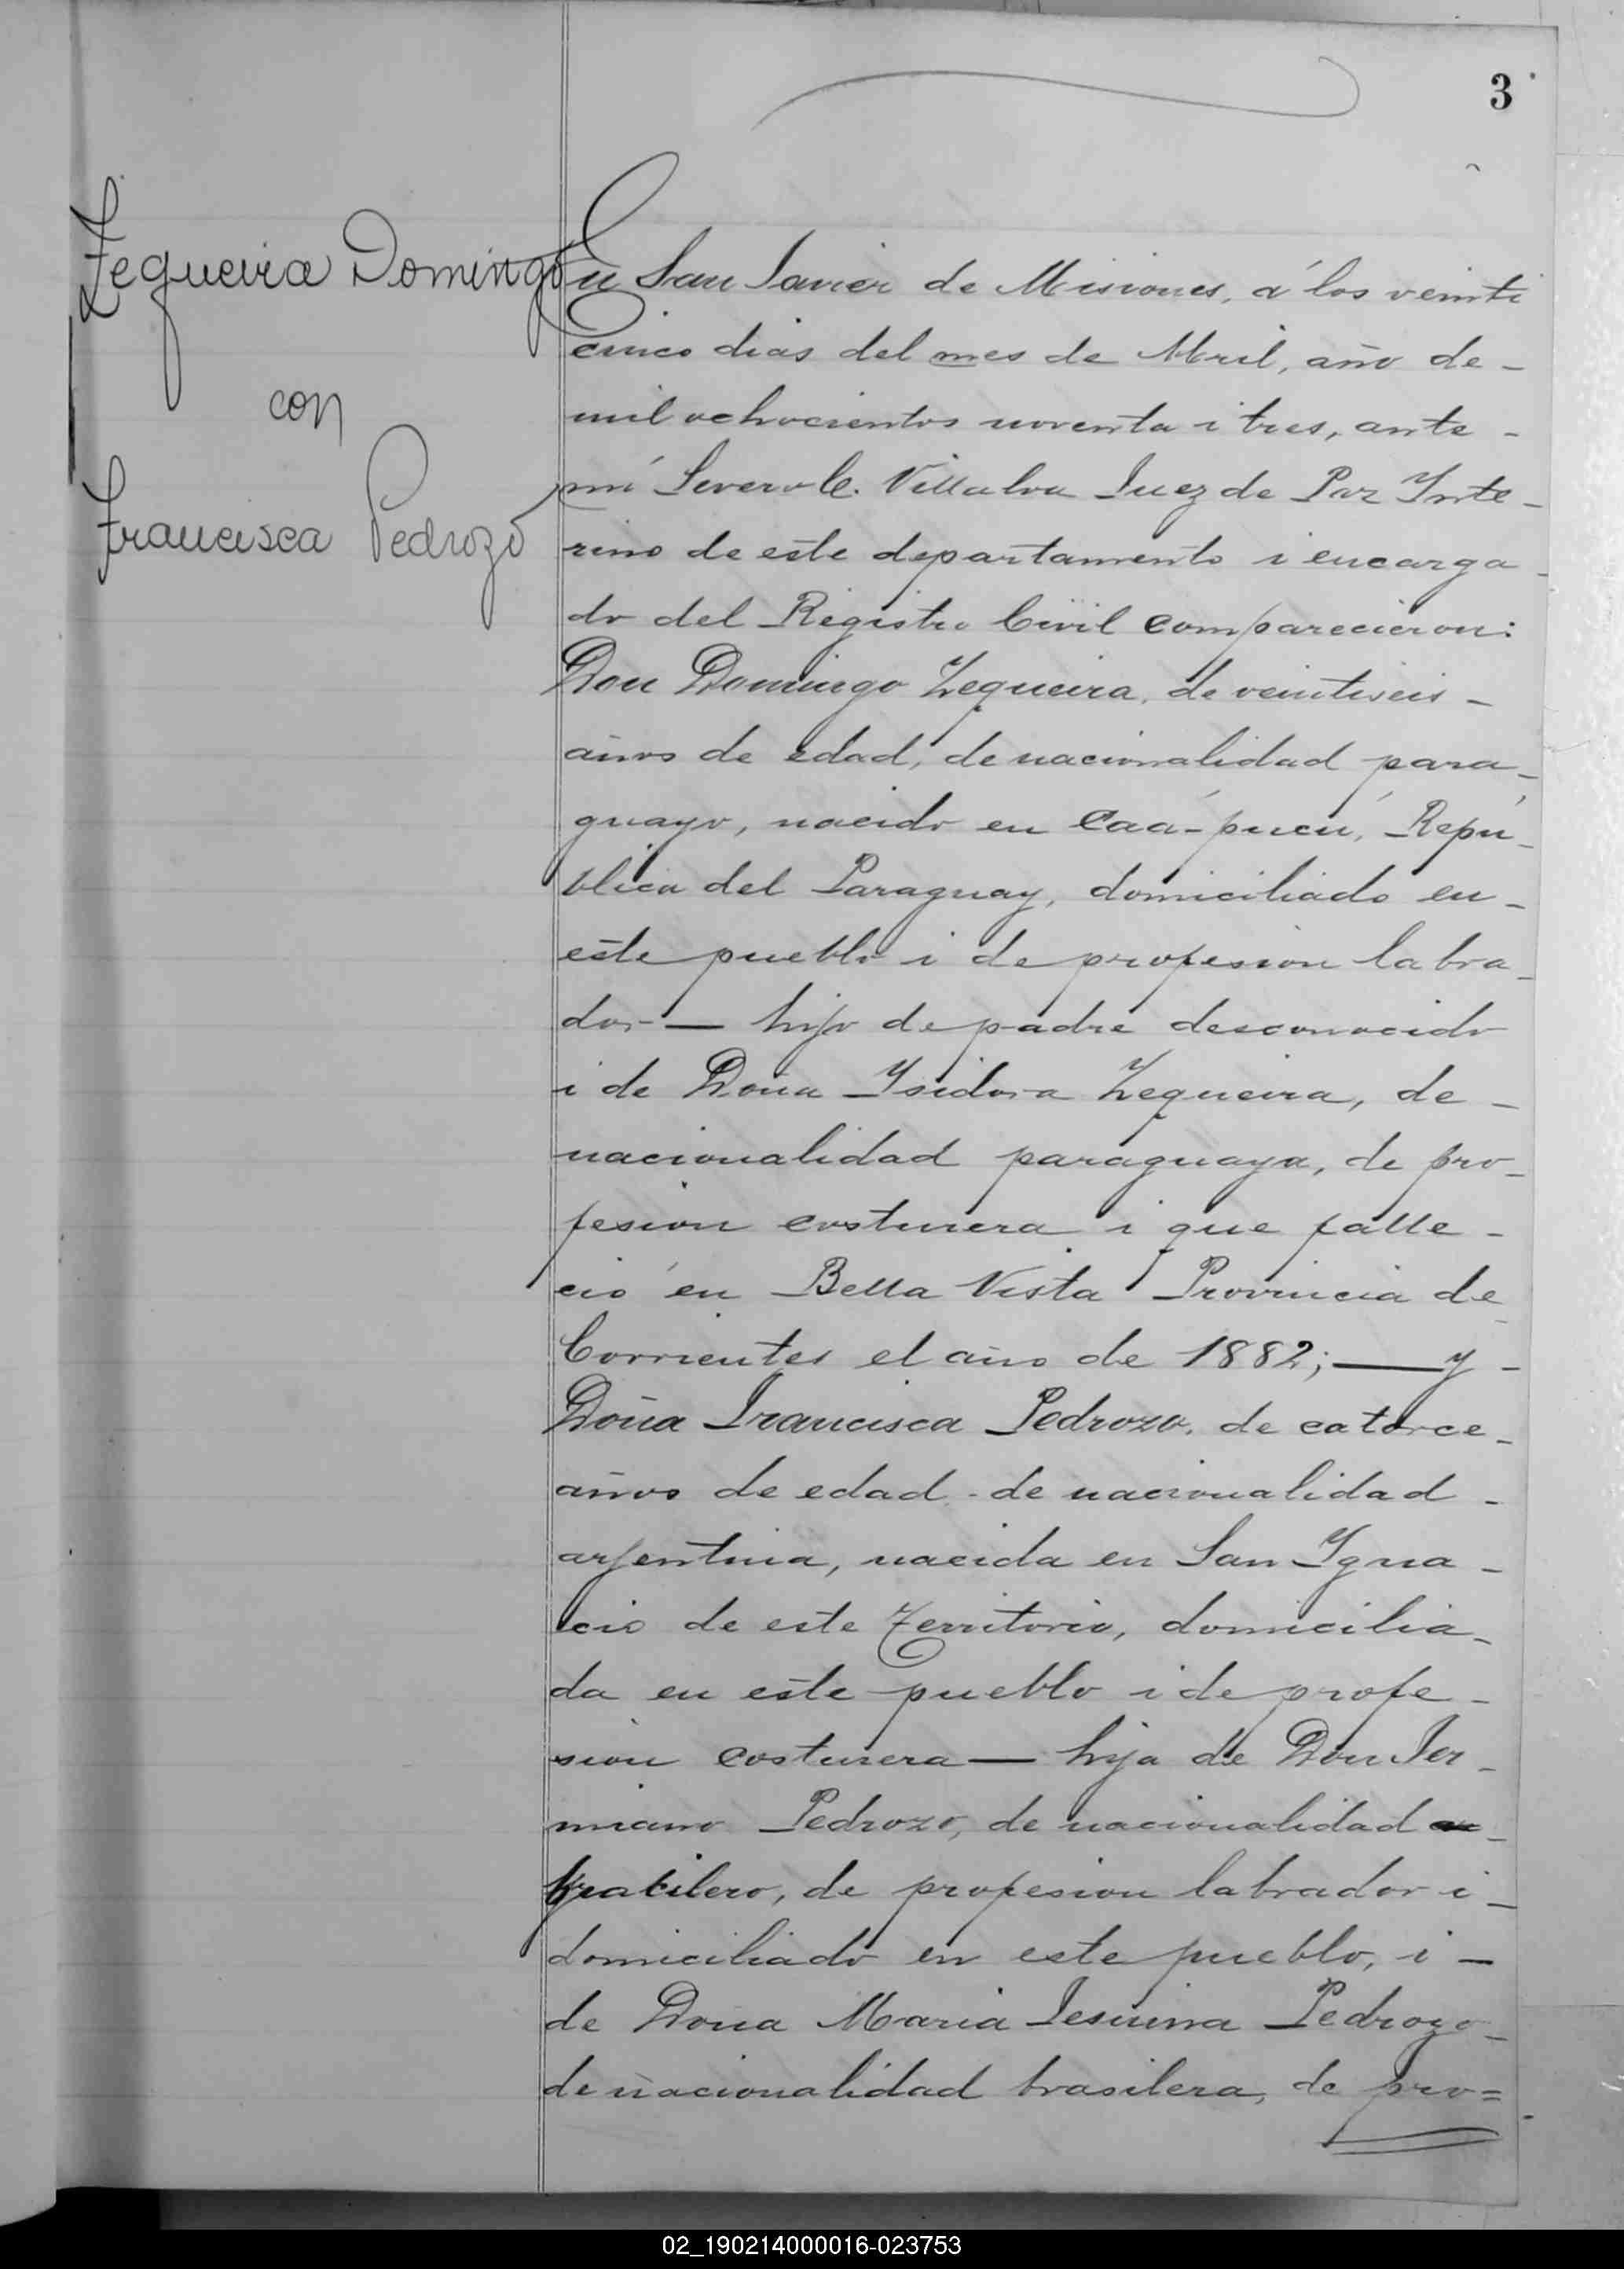 3
Zequeira Domingo
con
Francisca Pedrozo
En San Javier de Misiones, á los veinti
cinco dias del mes de Abril, año de -
mil ochocientos noventa i tres, ante -
mí Severo C. Villalva Juez de Paz Inte -
rino de este departamento i encarga -
do del Registro Civil comparecieron:
Don Domingo Zequeira, de veintiseis -
años de edad, de nacionalidad para -
guayo, nacido en Caá-pucú, Repú -
blica del Paraguay, domiciliado en -
este pueblo i de profesion labra -
dor — hijo de padre desconocido
i de Doña Ysidora Zequeira, de -
nacionalidad paraguaya, de pro -
fesion costurera i que falle -
ció en Bella Vista Provincia de
Corrientes el año de 1882; — y -
Doña Francisca Pedrozo, de catorce -
años de edad - de nacionalidad -
arjentina, nacida en San Ygna -
cio de este Territorio, domicilia -
da en este pueblo i de profe -
sion costurera — hija de Don Jer -
miano Pedrozo, de nacionalidad
brasilero, de profesion labrador i -
domiciliado en este pueblo, i —
de Doña Maria Jesuina Pedrozo -
de nacionalidad brasilera, de pro=
02_190214000016-023753